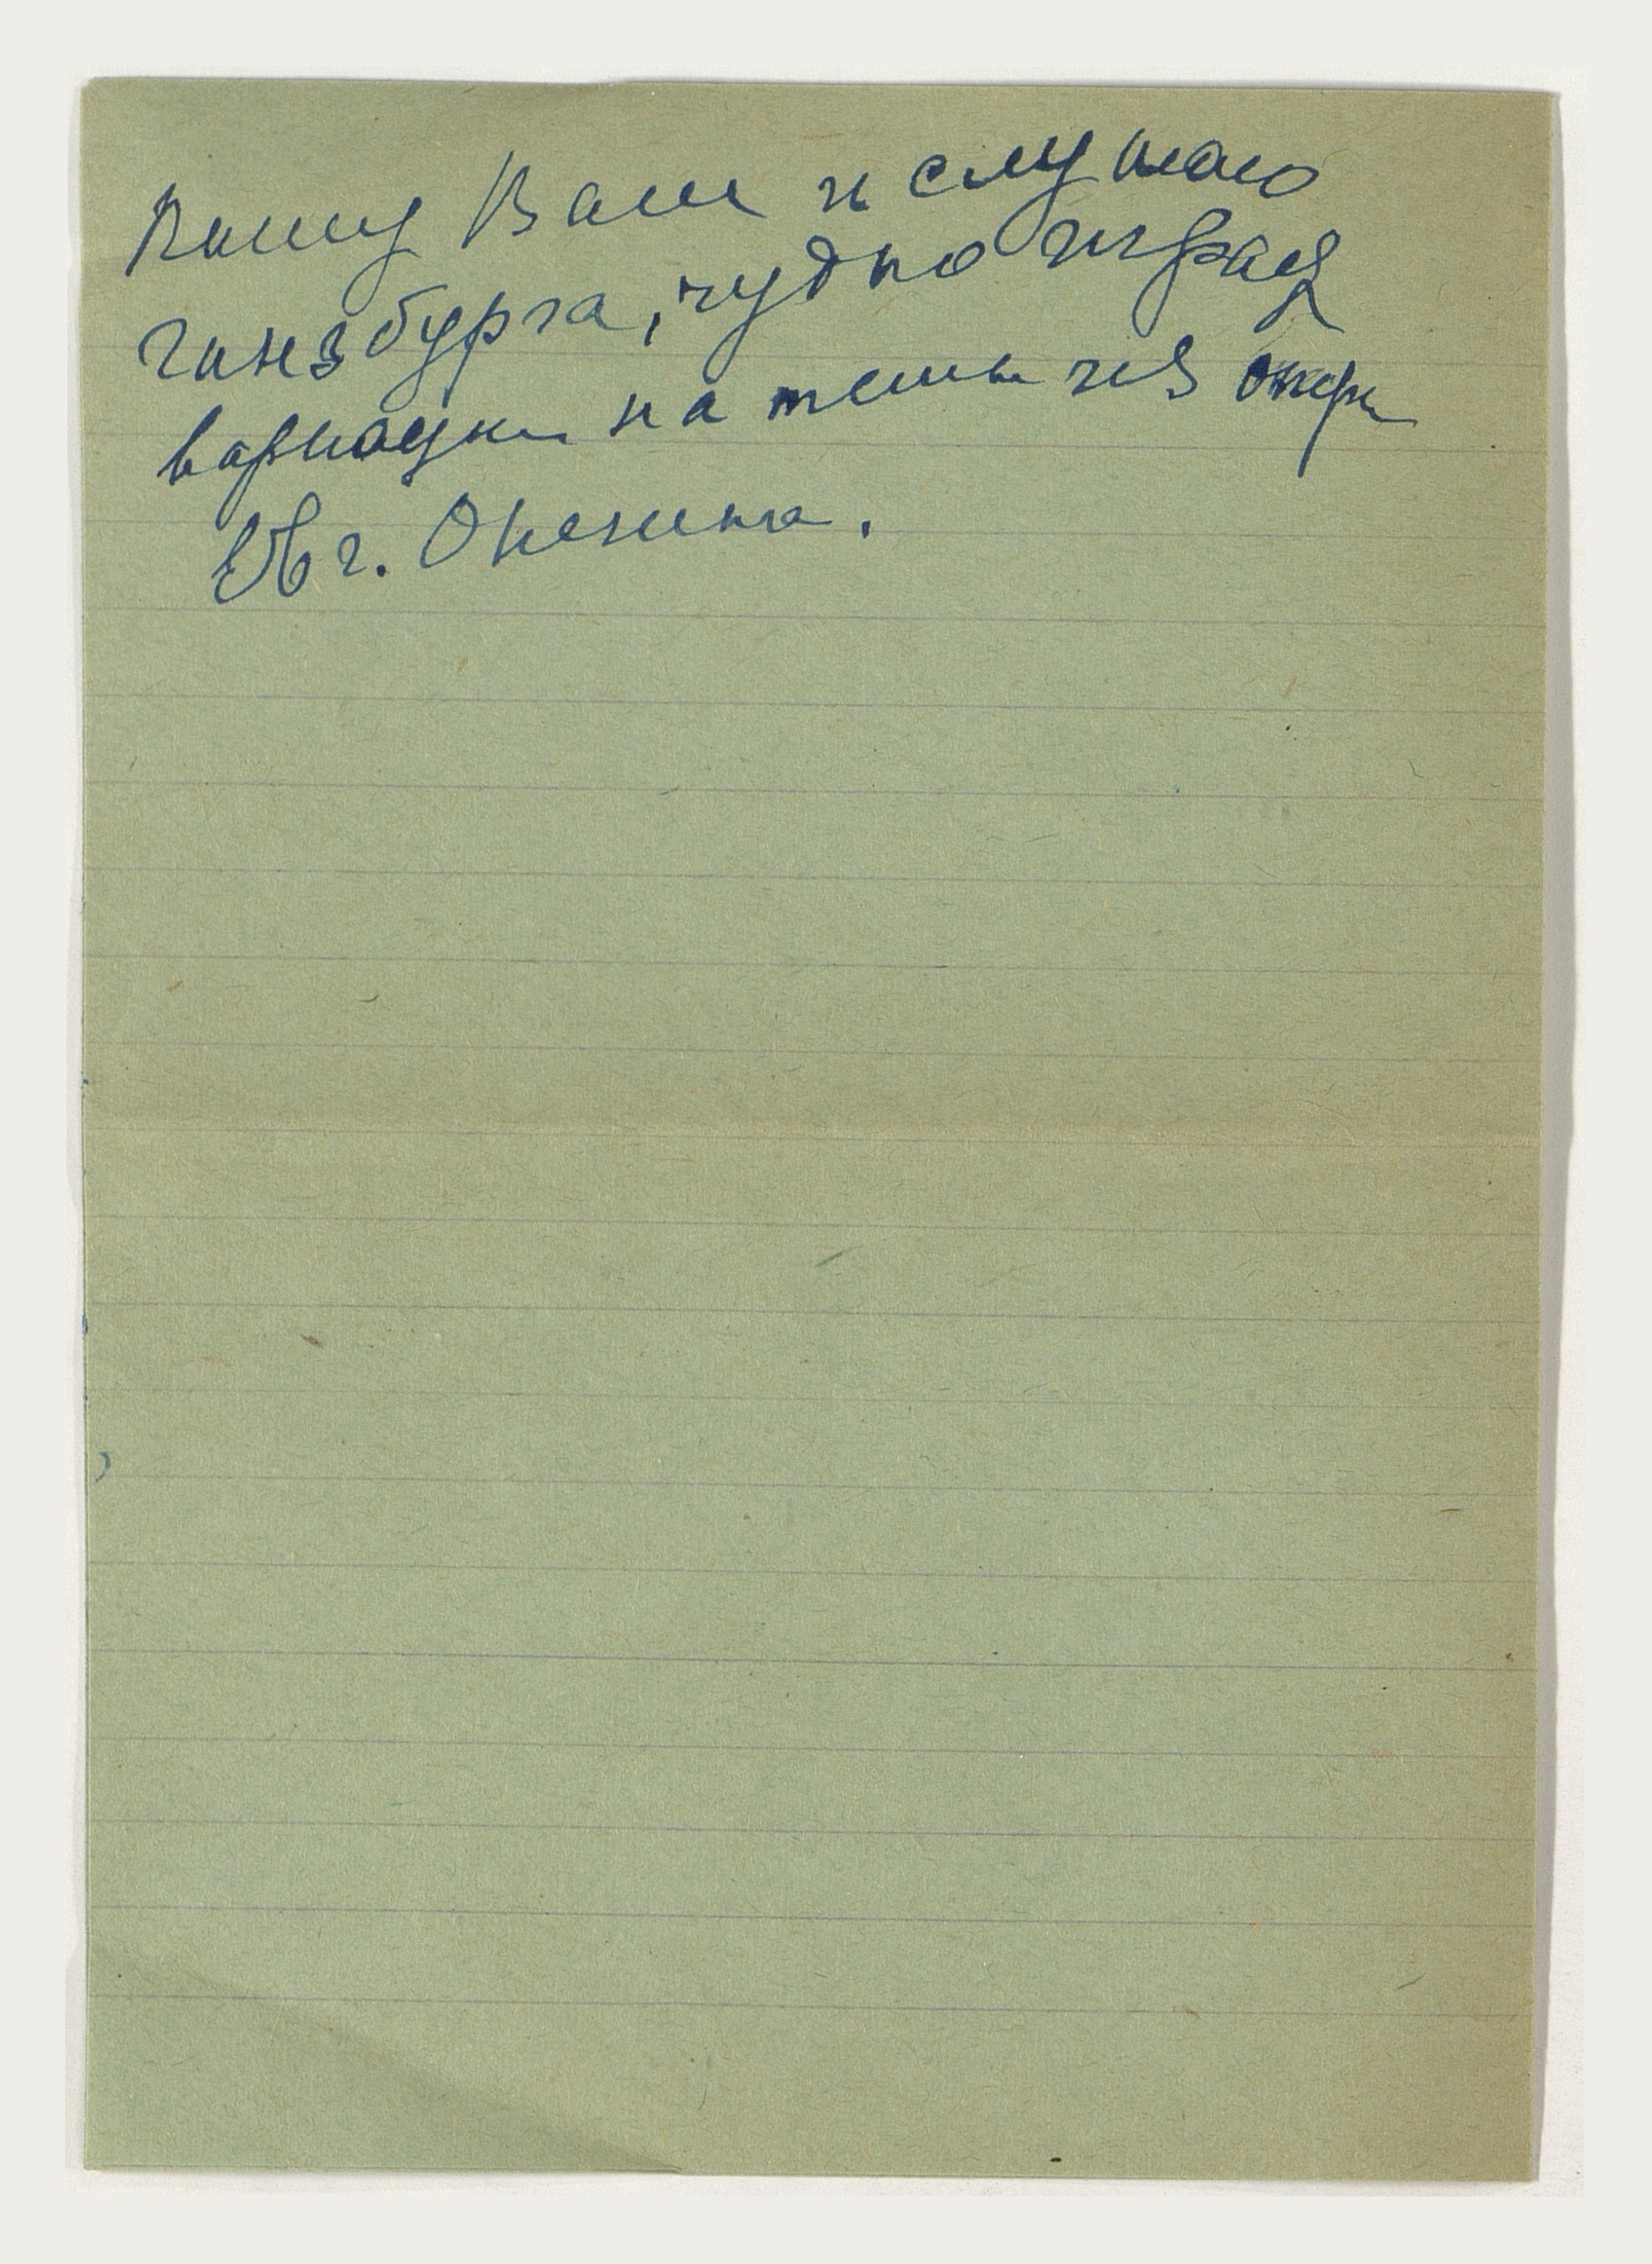 Пишу Вам и слушаю
Гинзбурга, чудно играя
вариации на темы из оперы
Евг. Онегина.